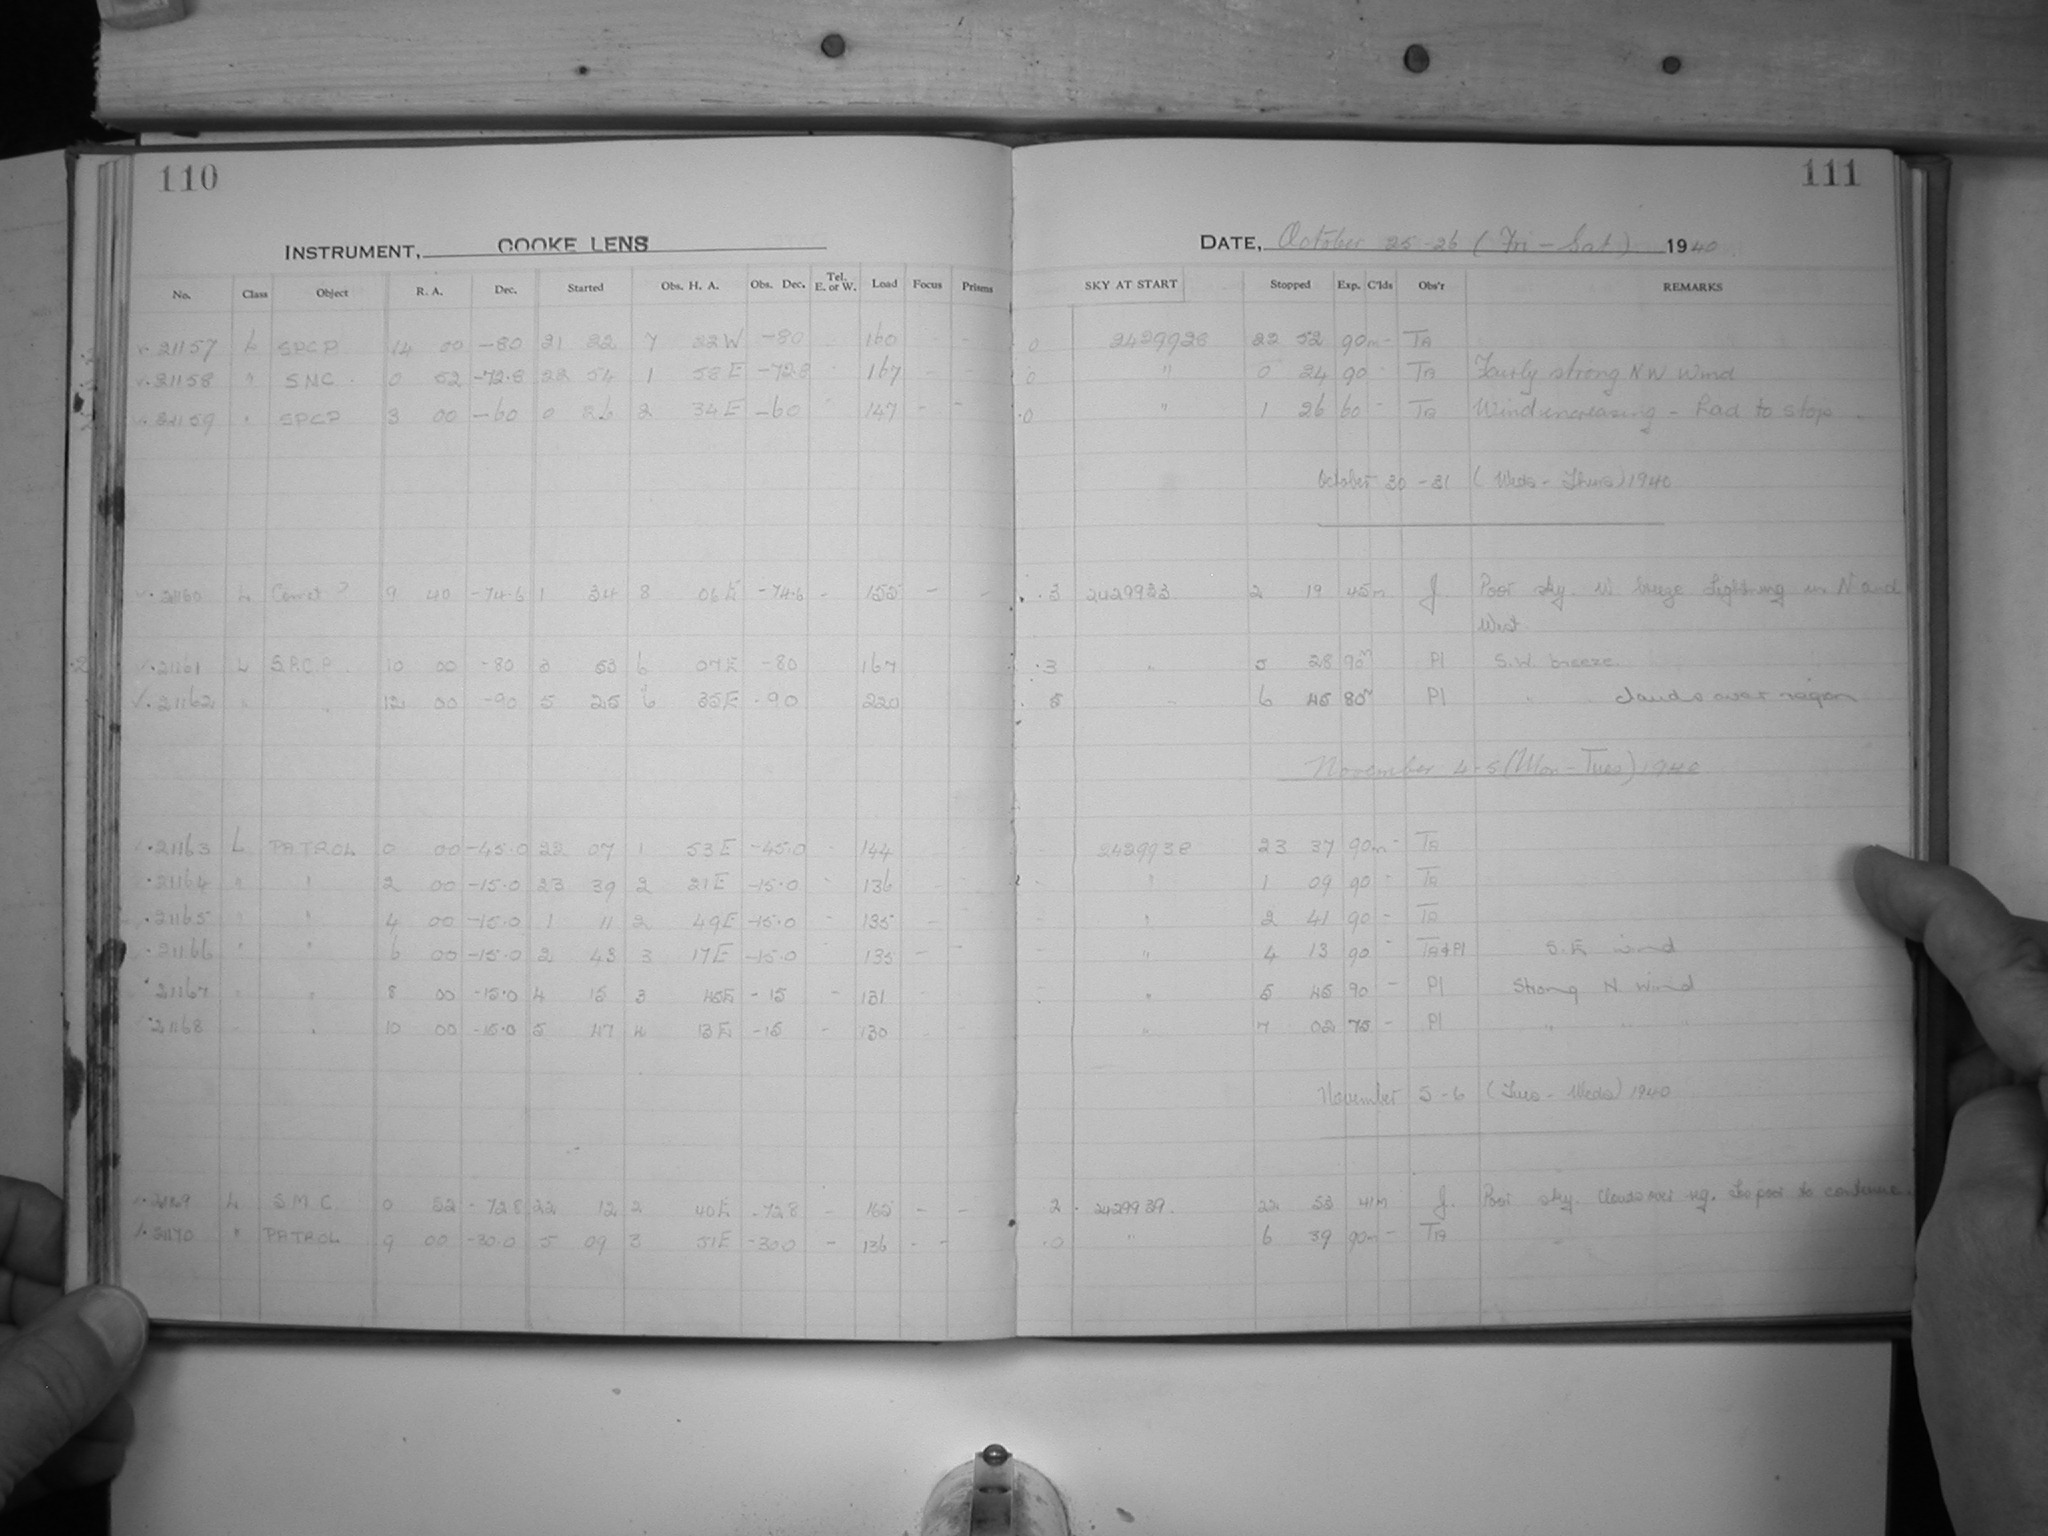 110
INSTRUMENT, COOKE LENS
No. Class Object R. A. Dec. Started Obs. H. A. Obs. Dec. Tel. E. or W. Load Focus Prisms
21157 L SPCP 14 00 -80 21 22 7 22W -80 160 - -
21158 " SMC. 0 52 -72.8 22 54 1 58E -72.8 167 - -
21159 " SPCP 3 00 -60 0 26 2 34E -60 147 - -
21160 L Comet? 9 40 -74.6 1 34 8 06E -74.6 - 155 - -
21161 L S.P.C.P. 10 00 -80 3 58 6 07E -80 167
21162 " " 12 00 -90 5 25 6 35E -90 220
21163 L PATROL 0 00 -45.0 22 07 1 53E -45.0 144
21164 " " 2 00 -15.0 23 39 2 21E -15.0 136
21165 " " 4 00 -15.0 1 11 2 49E -15.0 135
21166 " " 6 00 -15.0 2 43 3 17E -15.0 135 - -
21167 " " 8 00 -15.0 4 15 3 45E -15 - 131
21168 " 10 00 -15.0 5 47 4 13E -15 - 130
21169 L S.M.C. 0 52 -72.8 22 12 2 40E -72.8 - 165 - -
21170 " PATROL 9 00 -30.0 5 09 3 51E -30.0 - 136 - -
111
DATE, October 25-26 (Fri - Sat) 1940
SKY AT START Stopped Exp. C'lds Obs'r REMARKS
0 2429928 22 52 90m - TA
0 " 0 24 90 - TA Fairly strong NW wind
0 " 1 26 60 - TA Wind increasing - had to stop.
October 30-31 (Weds - Thurs) 1940
.3 2429933 2 19 45m J. Poor sky. W breeze Lightning in N and
West
.3 " 5 28 90m Pl S.W. breeze.
5 " 6 45 80m Pl " clouds over region
November 4-5 (Mon - Tues) 1940
- 2429938 23 37 90m - TA
- " 1 09 90 - TA
- " 2 41 90 - TA
- " 4 13 90 - TA & Pl S.E. wind
- " 5 45 90 - Pl Strong N. Wind
" 7 02 75 - Pl " " "
November 5-6 (Tues - Weds) 1940
2 2429939. 22 53 41m J. Poor sky. Clouds over rg. Too poor to continue.
.0 " 6 39 90m - TA